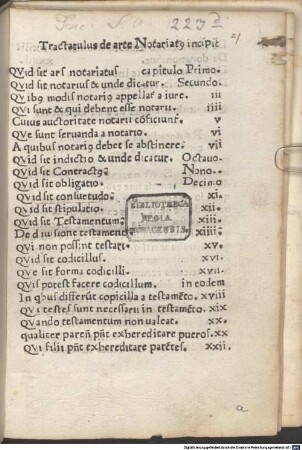 223 d
Tractatulus de arte Notariatꝰ incipit
QVid sit ars notariatus capitulo Primo.
QVid sit notarius & unde dicatur. Secundo.
QVibꝰ modis notariꝰ appellat̃ a iure. iii
QVi sunt & qui debent esse notarii. iiii
Cuius auctoritate notarii cõficiunt̃. v
QVe sunt seruanda a notario. vi
A quibus notariꝰ debet se abstinere. vii
QVid sit indictio & unde dicatur. Octauo.
QVid sit Contractꝰ Nono.
QVid sit obligatio. Decimo
QVid sit consuetudo xi.
QVid sit stipulatio. xii.
QVid sit Testamentum xiii.
De diuisione testamenti xiiii.
QVi non possint testari. xv.
QVid sit codicillus. xvi.
QVe sit forma codicilli xvii.
QVis potest facere codicillum. in eodem
In qbus differũt copicilla a testamẽto. xviii
QVi testes sunt necessarii in testamẽto. xix
QVando testamentum non ualeat. xx.
qualiter pareñ pñt exhereditare pueros. xx
QVi filii pñt exhereditare parẽtes. xxii.
BIBLIOTHECA
REGIA
MONACENSIS.
a